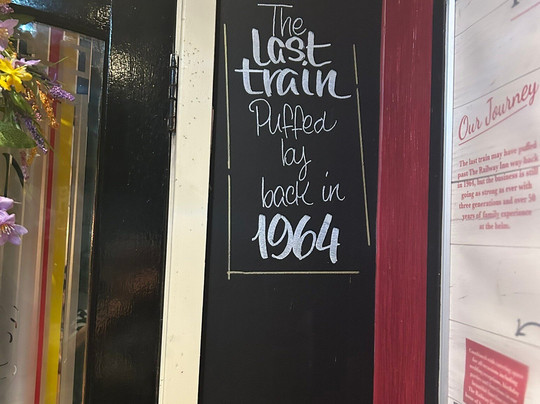 The
Last
train
Puffed
by
back in
1964
Our Journey
The last train may have puffed
past The Railway Inn way back
in 1964, but the business is still
going as strong as ever with
three generations and over 50
years of family experience
at the helm.